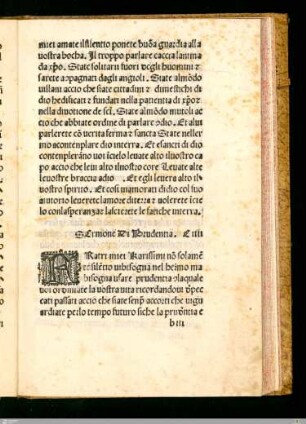 miei amate il silentio ponete buõa guardia alla
uostra bocha. Il troppo parlare caccia lanima
da xp̃o. State solitarii fuori degli huomini ⁊
sarete acõpagnati dagli angioli. State almõdo
uillani accio che siate cittadini ⁊ dimestichi di
dio hedificati ⁊ fundati nella patientia di xp̃o ⁊
nella diuotione de sc̃i. State almõdo mutoli ac
cio che abbiate ordine di parlare cõdio. Et alui
parlerete cõ uerita ferma ⁊ sancta State neller
mo acontemplare dio interra. Et e sancti di dio
contemplerãno uoi icielo leuate alto iluostro ca
po accio che leui alto iluostro core Leuate alte
le uostre braccia adio. Et egli leuera alto il
uostro spirito. Et cosi inamorati didio col suo
aiutorio leuerete lamore diterra ⁊ uolerete icie
lo con la speranza ⁊ lascierete le fanche interra.
SErmone Di Prudentia. C iiii
FRatri miei Karissimi nõ solamẽ
te silẽtio ubisogna nel heimo ma
bisogna usare prudentia colaquale
uoi ordiniate la uostra uita ricordandoui d̃pec
cati passati accio che siate senp̃ accorti che uigu
ardiate per lo tempo futuro siche la prudentia e
b iii